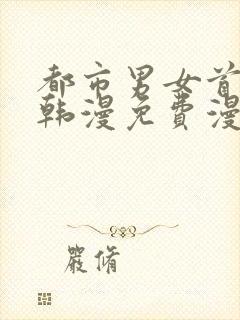 都市男女首
韩漫免费漫
严脩